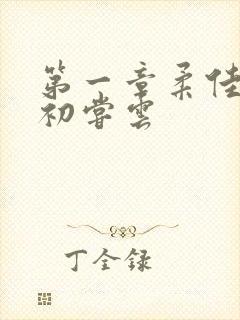 第一章柔佳
初尝雲
丁全録